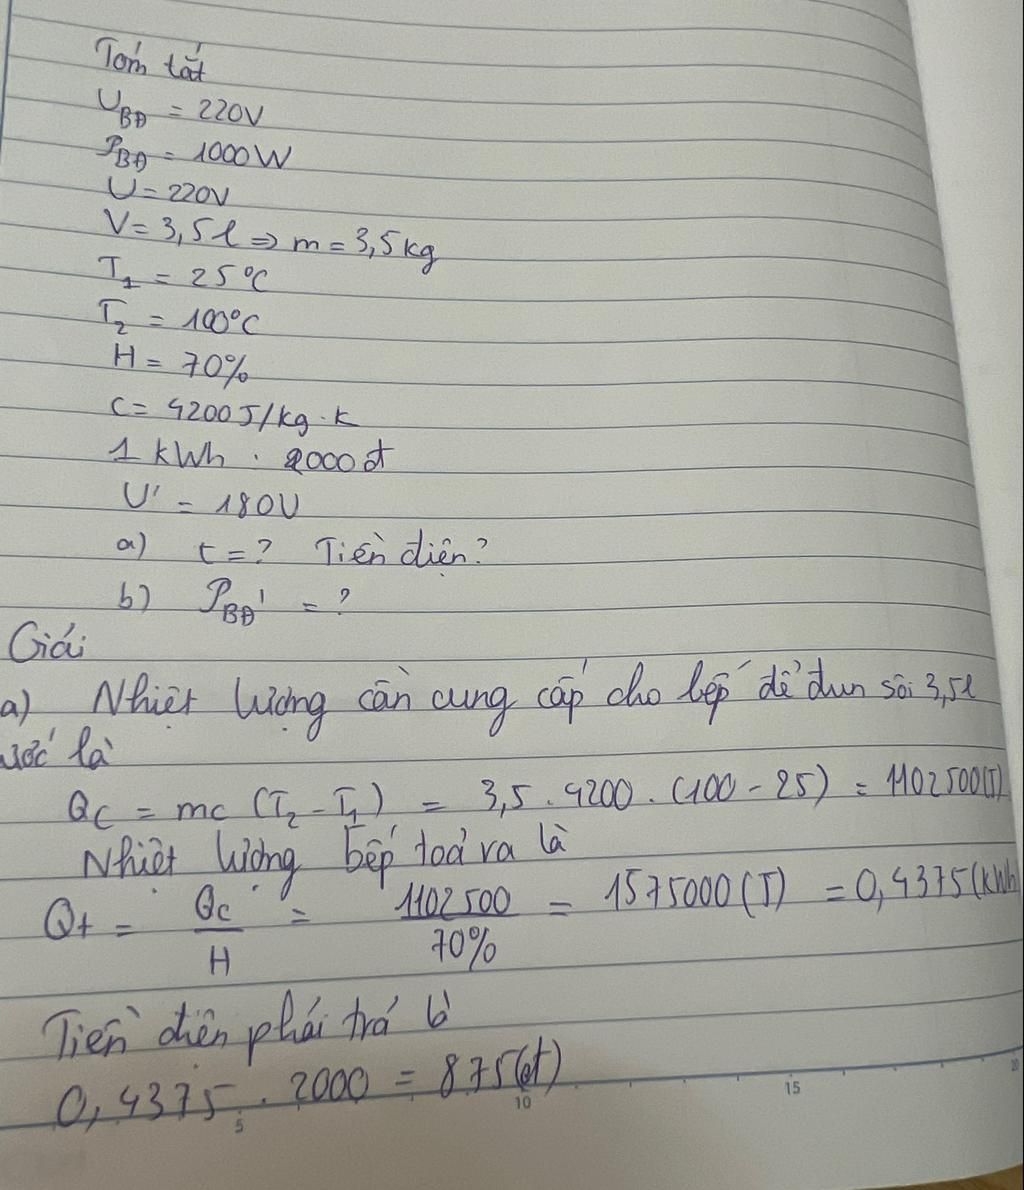 Tóm tắt
U_BĐ = 220V
P_BĐ = 1000W
U = 220V
V = 3,5l => m = 3,5kg
T_1 = 25°C
T_2 = 100°C
H = 70%
c = 4200J/kg.K
1 kWh : 2000đ
U' = 180V
a) t = ? Tiền điện?
b) P_BĐ' = ?
Giải
a) Nhiệt lượng cần cung cấp cho bếp để đun sôi 3,5l
ước là
Q_c = mc (T_2 - T_1) = 3,5 . 4200 . (100 - 25) = 1102500(J)
Nhiệt lượng bếp toả ra là
Q_t = Q_c / H = 1102500 / 70% = 1575000(J) = 0,4375(kWh
Tiền điện phải trả là
0,4375 . 2000 = 875(đ)
5 10 15 20